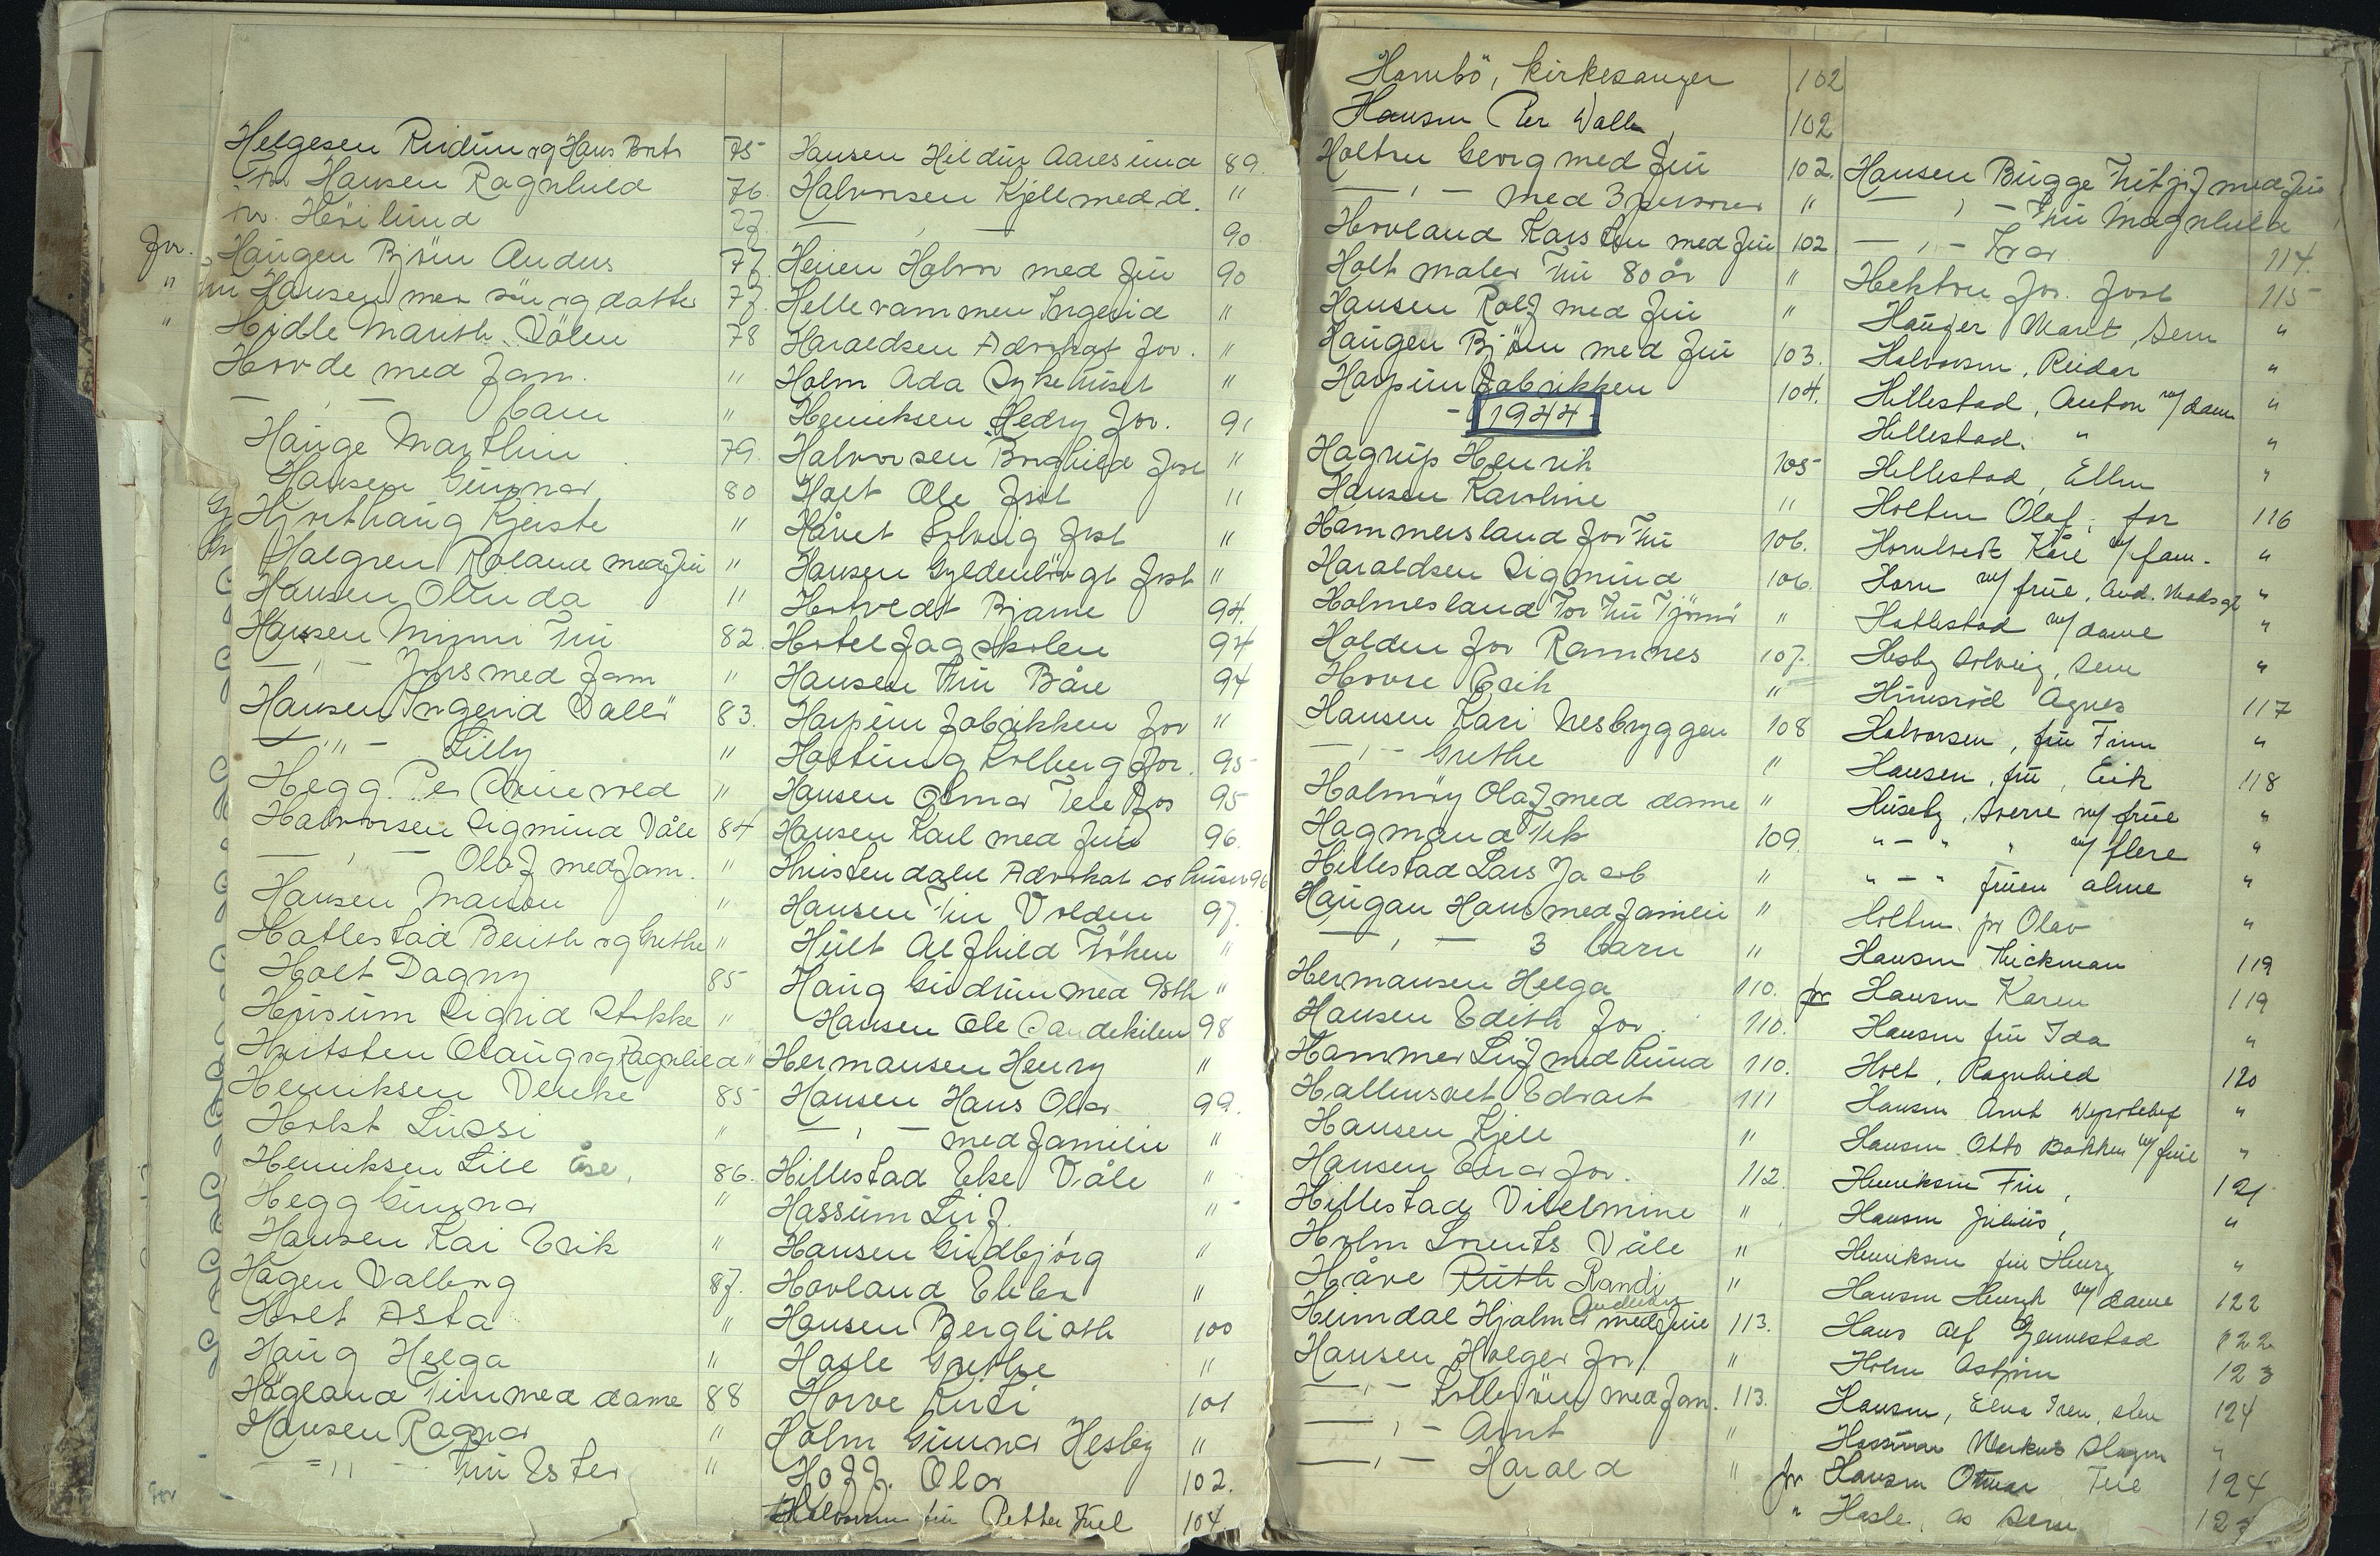 Helgesen Reidun og Hans 75
Frk Hansen Ragnhild 76.
77
Jor. Haugen Bjørn Anders 77.
" Hansen med sön og datter 77.
" Hidle Marith. Välen 78
Hovde med fam. "
— " — barn "
Hauge Marthin 79.
Hansen Gunnar 80
Hjorthaug Kjerste "
Halgren Roland med fru "
Hansen Olinda "
Hansen Minni Fru 82.
— " — Johs med fam "
Hansen Ingerid Vallö 83.
— " — Lilly "
Hegg. Per "
Halvorsen Sigmund Våle 84
— " — Olaf med fam. "
Hansen Marion "
Hatlestad Berith og Grethe "
Holt Dagny 85
Husum Sigrid Stokke "
Hvitsten Olaug og Ragnhild "
Henriksen Venke 85
Holst Lussi "
Henriksen Lill Åse, 86.
Hegg Gunnar "
Hansen Kai Erik "
Hagen Valborg 87.
Holt Asta "
Haug Helga "
Högland Finn med dame 88
Hansen Ragnar "
— " — Fru Ester "
Hansen Hildur Aaresund 89.
Halvorsen Kjell med d. "
— " — 90
Heien Halvor med fru 90
Hellerammen Ingerid "
Haraldsen Advokat for. "
Holm Ada Sykehuset "
Henriksen Hedry for. 91
Halvorsen Borghild Jost "
Holt Ole Jost "
Håvet Solveig Jost "
Hansen Gyldenlövgt Jost "
Hotvedt Bjarne 94.
Hotel fagskolen 94
Hansen Fru Båre 94
Harpun fabrikken for "
Hatting Kolberg for. 95
Hansen Otmar Teie Bos 95
Hansen Karl med fru 96.
Advokat 96
Hansen Fru Volden 97.
Hult Alfhild Töken "
Haug Gudrun med "
Hansen Ole Sandekilen 98
Hermansen Henry "
Hansen Hans Olav 99.
— " — med familie "
Hillestad Else Våle "
Hassum Leif. "
Hansen Gudbjörg "
Hovland Ellen "
Hansen Berglioth 100
Hasle Grethe "
Horve Kirsti 101
Holm Gunnar Hesby "
Hoff. Olav 102.
Halvorsen fru Petter Juel 104
Hambö, kirkesanger 102
Hansen Per Valle 102
Holten Georg med fru 102.
— " — med 3 personer "
Hovland Karsten med fru 102
Holt maler Fru 80 år "
Hansen Rolf med fru "
Haugen Bjørn med fru 103.
Harpun fabrikken 104.
- 1944 -
Hagrup Henrik 105
Hansen Karoline "
Hammersland for Fru 106.
Haraldsen Sigmund 106.
Holmesland for Fru Tjömö "
Holden for Ramnes 107.
Hovre Erik "
Hansen Kari Nesbryggen 108
— " — Grethe "
Holmöy Olaf med dame "
Hagmand Frk 109.
Hillestad Lars Jacob "
Haugan Hans med familie "
— " — 3 barn "
Hermansen Helga 110.
Hansen Edith for. 110.
Hammer Leif med hund 110.
Hallensvet Edvart 111
Hansen Kjell "
Hansen Einar for. 112.
Hillestad Vilelmine "
Holm Lorents Våle "
Håve Ruth Randi "
Heimdal Hjalmar Andersen med fru 113.
Hansen Holger for "
— " — med fam. 113.
— " — Arnt "
— " — Harald "
Hansen Bugge med fru
— " — Fru Magnhild
— " — Ivar 114.
Hektoen for. Jost 115
Hauger Marit, Sem "
Halvorsen, Reidar "
Hillestad, Anton m/ dame "
Hillestad. " "
Hillestad, Ellen "
Holten Olaf, for 116
Hornkvedt Kåre m/ fam. "
Horn m/ frue, And. Madsgt "
Hatlestad m/ dame "
Hesby Solveig, Sem "
Himsröd Agnes 117
Halvorsen, fru Finn "
Hansen, fru, Erik 118
Huseby, Sverre m/ frue "
" - " " m/ flere "
" - " fruen alene "
Holten pr Olav "
Hansen Hickman 119
for Hansen Karen 119
Hansen fru Ida "
Holt, Ragnhild 120
Hansen Arnt "
Hansen Otto Bakken m/ frue "
Henriksen Finn, 121
Hansen Julius, "
Henriksen fru Henry "
Hansen Henryk m/ dame 122
Hans Alf Gjennestad 122
Holm Asbjørn 123
Hansen, Elna Iren, Sem 124
Markus Slagen "
for Hansen Otmar Teie 124
" Hasle, as Sem